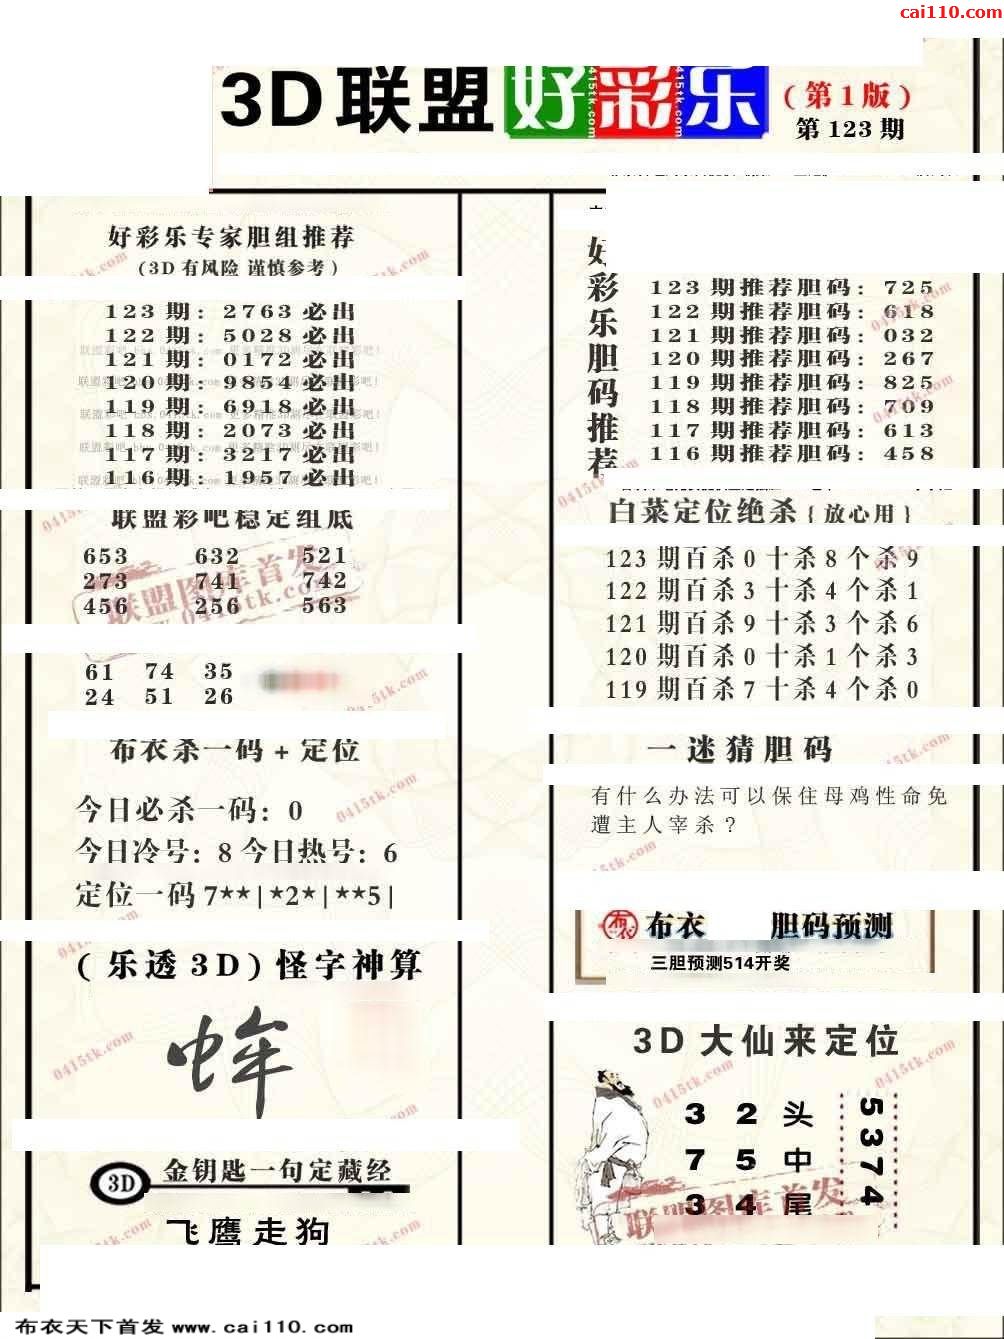 cai110.com
3D联盟好彩乐
(第1版)
第123期
好彩乐专家胆组推荐
(3D有风险 谨慎参考)
123期: 2763必出
122期: 5028必出
121期: 0172必出
120期: 9854必出
119期: 6918必出
118期: 2073必出
117期: 3217必出
116期: 1957必出
联盟彩吧稳定组底
653 632 521
273 741 742
456 256 563
61 74 35
24 51 26
布衣杀一码+定位
今日必杀一码: 0
今日冷号: 8 今日热号: 6
定位一码 7**|*2*|**5|
(乐透3D)怪字神算
3D
金钥匙一句定藏经
飞鹰走狗
好彩乐胆码推荐
123期推荐胆码: 725
122期推荐胆码: 618
121期推荐胆码: 032
120期推荐胆码: 267
119期推荐胆码: 825
118期推荐胆码: 709
117期推荐胆码: 613
116期推荐胆码: 458
白菜定位绝杀{放心用}
123期百杀0十杀8个杀9
122期百杀3十杀4个杀1
121期百杀9十杀3个杀6
120期百杀0十杀1个杀3
119期百杀7十杀4个杀0
一迷猜胆码
有什么办法可以保住母鸡性命免
遭主人宰杀?
布衣 布衣 胆码预测
三胆预测514开奖
3D大仙来定位
3 2 头
7 5 中
3 4 尾
5374
联盟图库首发
0415tk.com
布衣天下首发 www.cai110.com